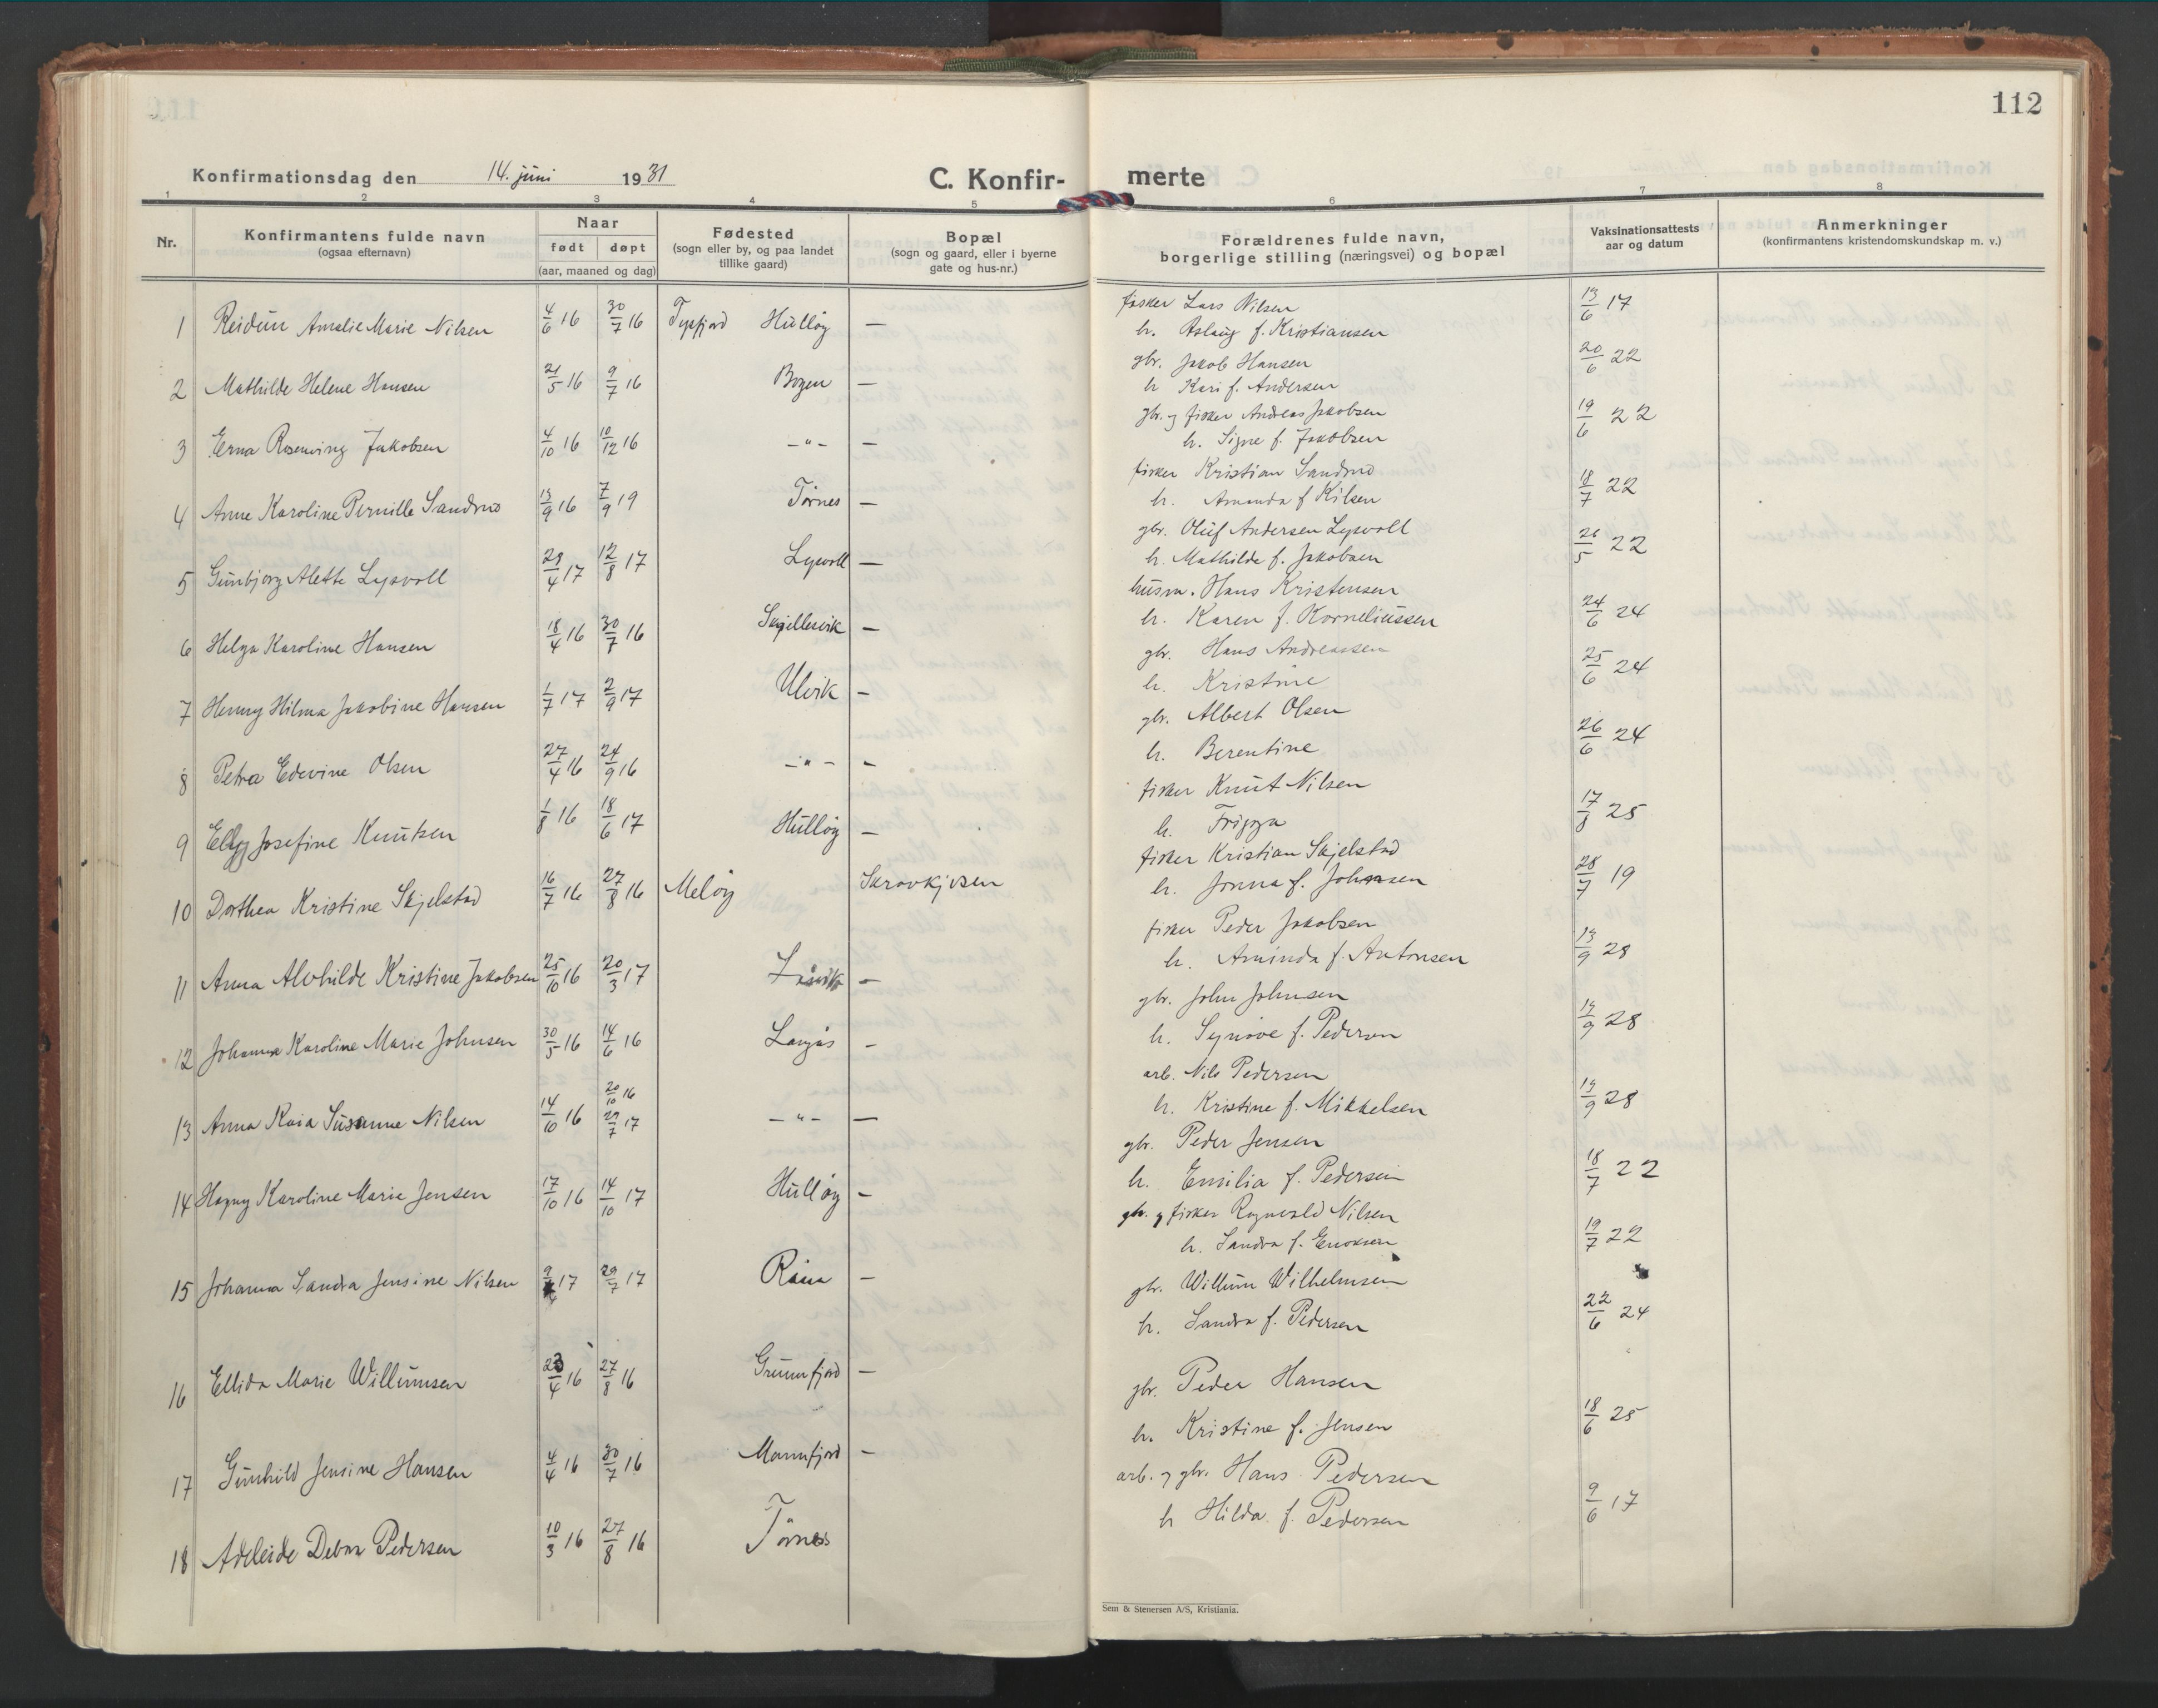 112
Konfirmationsdag den 14. juni 1931
C. Konfir- merte
1 2 3 4 5 6 7 8
Nr.
Konfirmantens fulde navn
(ogsaa efternavn)
Naar
født døpt
(aar, maaned og dag)
Fødested
(sogn eller by, og paa landet
tillike gaard)
Bopæl
(sogn og gaard, eller i byerne
gate og hus-nr.)
Forældrenes fulde navn,
borgerlige stilling (næringsvei) og bopæl
Vaksinationsattests
aar og datum
Anmerkninger
(konfirmantens kristendomskundskap m. v.)
1 Reidun Amalie Marie Nilsen 4/6 16 30/7 16 Tysfjord Hulløy —
fisker Lars Nilsen
h. Aslaug f. Kristiansen
13/6 17
2 Mathilde Helene Hansen 21/5 16 9/7 16 Bogen —
gbr. Jakob Hansen
h. Kari f. Andersen
20/6 22
3 Erna Rosenving Jakobsen 4/10 16 10/12 16 -"- —
gbr. og fisker Andreas Jakobsen
h. Signe f. Jakobsen
19/6 22
4 Anne Karoline Pernille Sandmo 13/9 16 7/9 19 Tørnes —
fisker Kristian Sandmo
h. Amanda f. Nilsen
18/7 22
5 Gunbjorg Alette Lysvoll 28/4 17 12/8 17 Lysvoll —
gbr. Oluf Andersen Lysvoll
h. Mathilde f. Jakobsen
26/5 22
6 Helga Karoline Hansen 18/4 16 30/7 16 Skjellesvik —
husm. Hans Kristensen
h. Karen f. Korneliussen
24/6 24
7 Henny Hilma Jakobine Hansen 1/7 17 2/9 17 Ulvik —
gbr. Hans Andreassen
h. Kristine
25/6 24
8 Petra Edevine Olsen 27/4 16 24/9 16 -"- —
gbr. Albert Olsen
h. Berentine
26/6 24
9 Elly Josefine Knutsen 1/8 16 18/6 17 Hulløy —
fisker Knut Nilsen
h. Frigga
17/8 25
10 Dorthea Kristine Skjelstad 16/7 16 27/8 16 Meløy Skrovkjosen
fisker Kristian Skjelstad
h. Jonna f. Johansen
28/7 19
11 Anna Alvhilde Kristine Jakobsen 25/10 16 20/3 17 —
fisker Peder Jakobsen
h. Aminda f. Antonsen
13/9 28
12 Johanna Karoline Marie Johnsen 30/5 16 14/6 16 Langås —
gbr. John Johnsen
h. Synøve f. Pedersen
14/9 28
13 Anna Kaia Susanne Nilsen 14/10 16 20/10 16 -"- —
29/7 17
arb. Nils Pedersen
h. Kristine f. Mikkelsen
14/9 28
14 Hagny Karoline Marie Jensen 17/10 16 14/10 17 Hulløy —
gbr. Peder Jensen
h. Emilia f. Pedersen
18/7 22
15 Johanna Sandra Jensine Nilsen 9/4 17 29/7 17 —
gbr. og fisker Ragnvald Nilsen
h. Sandra f. Enoksen
19/7 22
16 Ellida Marie Willumsen 23/4 16 27/8 16 Grunnfjord —
gbr. Willum Wilhelmsen
h. Sandra f. Pedersen
22/6 24
17 Gunhild Jensine Hansen 4/4 16 30/7 16 Mannfjord —
gbr. Peder Hansen
h. Kristine f. Jensen
18/6 25
18 Adeleide Debora Pedersen 10/3 16 27/8 16 Tørnes
arb. og gbr. Hans Pedersen
h. Hilda f. Pedersen
9/6 17
Sem & Stenersen A/S, Kristiania.